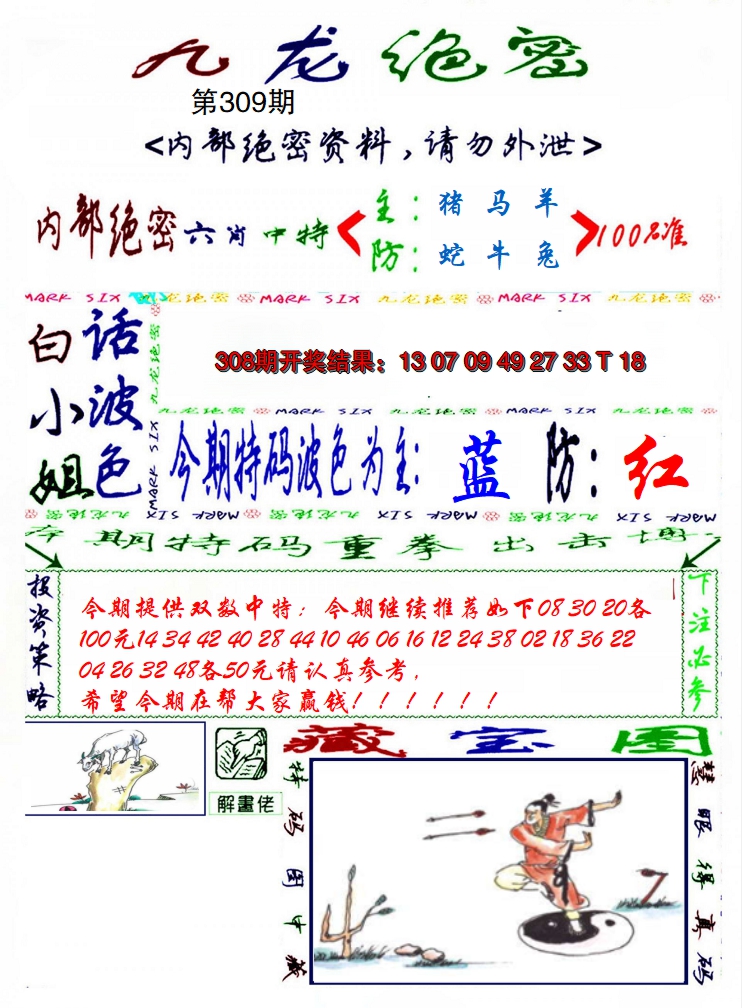 九龙绝密
第309期
<内部绝密资料,请勿外泄>
内部绝密六肖中特
主：猪 马 羊
防：蛇 牛 兔
100%准
MARK SIX 九龙绝密 MARK SIX 九龙绝密 MARK SIX 九龙绝密
白小姐
话波色
九龙绝密
MARK SIX
308期开奖结果：13 07 09 49 27 33 T 18
九龙绝密 MARK SIX 九龙绝密 MARK SIX 九龙绝密
今期特码波色为主: 蓝 防: 红
九龙绝密 MARK SIX 九龙绝密 MARK SIX 九龙绝密 MARK SIX
本期特码重拳出击博
投资策略
今期提供双数中特；今期继续推荐如下08 30 20各
100元14 34 42 40 28 44 10 46 06 16 12 24 38 02 18 36 22
04 26 32 48各50元请认真参考,
希望今期在帮大家赢钱！！！！！！
下注必参
解畫佬
藏宝图
特码图中藏
慧眼得真码